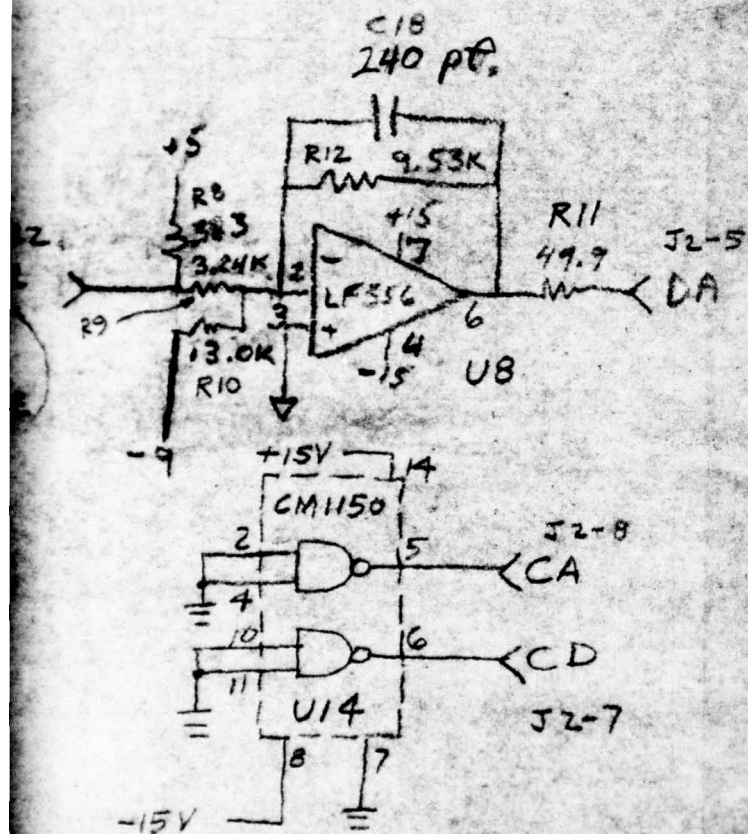 C18
240 pf.
+5
R12 9.53K
R8
383
+15
R11
49.9
J2-5
7
3.24K
2
-
LF356
DA
R9
3
+
6
13.0K
4
R10
-15
U8
-9
+15V
14
CM1150
J2-8
2
5
CA
4
10
6
CD
11
U14
J2-7
8
7
-15V